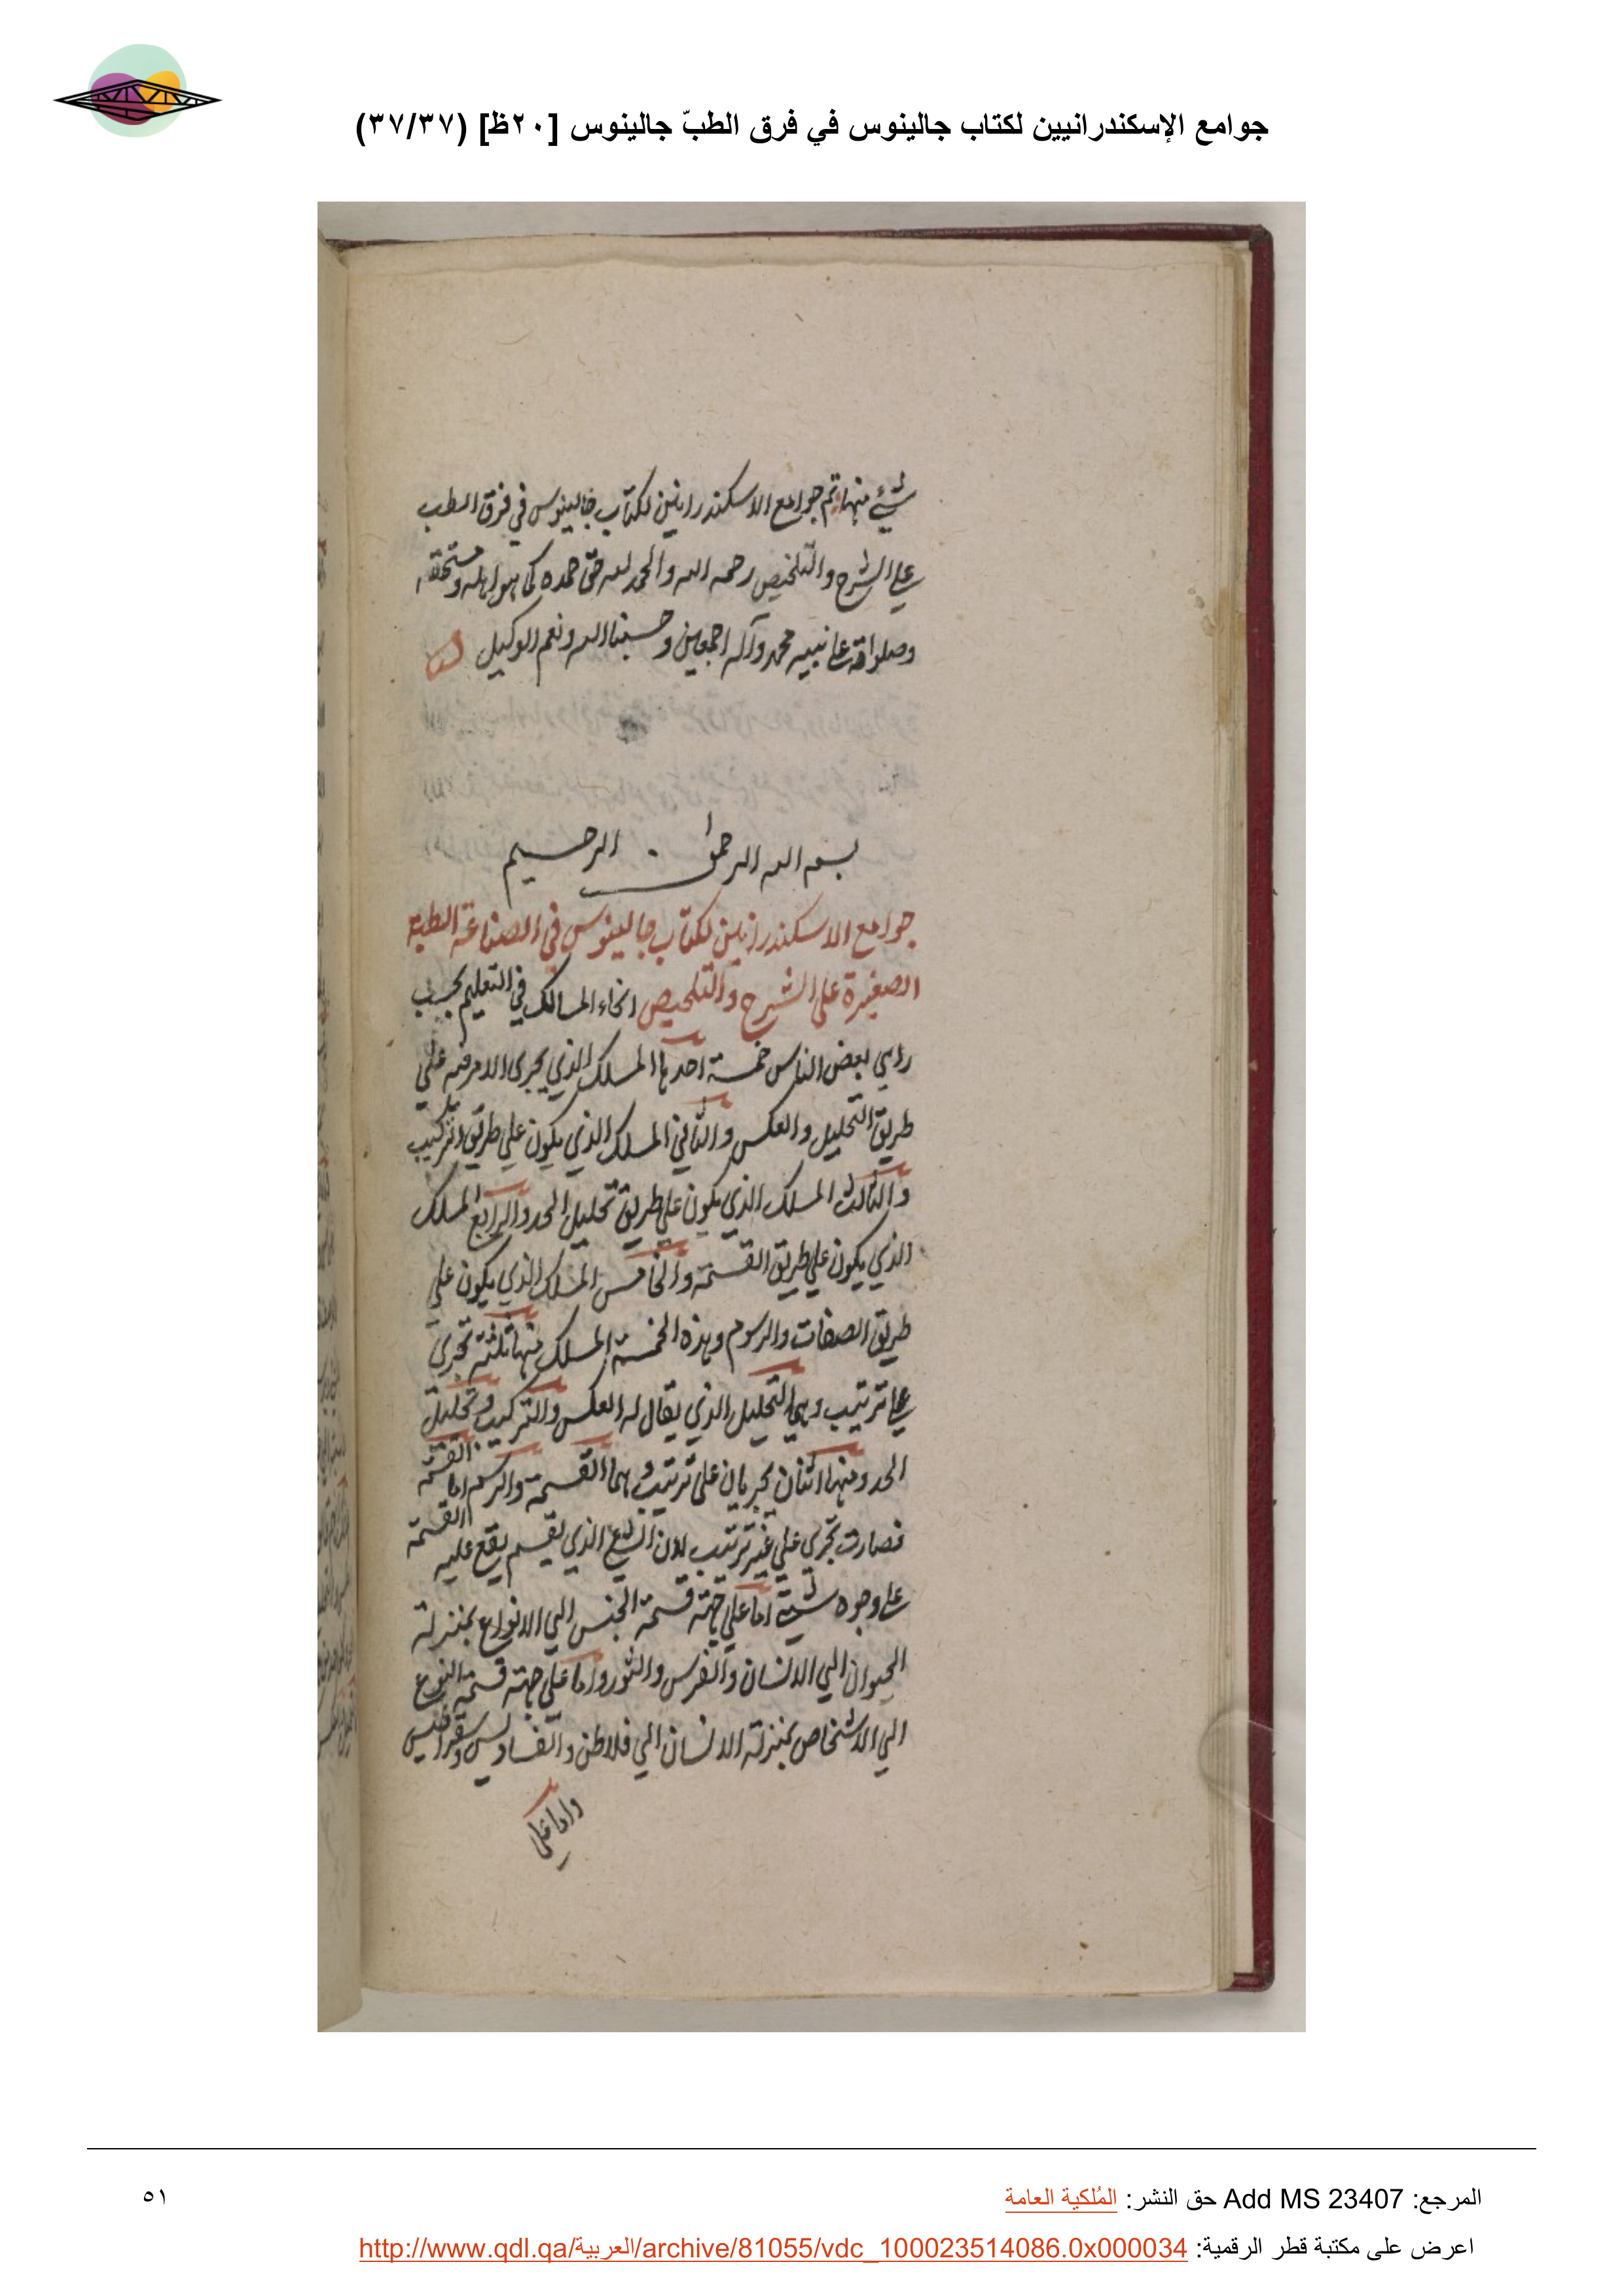 جوامع الإسكندرانيين لكتاب جالينوس في فرق الطبّ جالينوس [٢٠ظ] (٣٧/٣٧)
شيء منها تم جوامع الاسكندرانيين لكتاب جالينوس في فرق الطب
على الشرح والتلخيص رحمه الله والحمد لله حق حمده كما هو اهله ومستحقه
وصلواته على نبيه محمد وآله اجمعين وحسبنا الله ونعم الوكيل
بسم الله الرحمن الرحيم
جوامع الاسكندرانيين لكتاب جالينوس في الصناعة الطبية
الصغيرة على الشرح والتلخيص انحاء المسالك في التعليم بحسب
راي بعض الناس خمسة احدها المسلك الذي يجرى الامر فيه على
طريق التحليل والعكس والثاني المسلك الذي يكون على طريق التركيب
والثالث المسلك الذي يكون على طريق تحليل الحد والرابع المسلك
الذي يكون على طريق القسمة والخامس المسلك الذي يكون على
طريق الصفات والرسوم وهذه الخمسة المسلك منها ثلثة تجرى
على ترتيب وهي التحليل الذي يقال له العكس والتركيب وتحليل
الحد ومنها اثنان يجريان على ترتيب وهما القسمة والرسم اما القسمة
فصارت تجرى على غير ترتيب لان الشيء الذي يقسم يقع عليه القسمة
على وجوه شتى اما على جهة قسمة الجنس الى الانواع بمنزلة
الحيوان الى الانسان والفرس والثور واما على جهة قسمة النوع
الى الاشخاص بمنزلة الانسان الى فلاطن و وسقراطيس
واما على
المرجع: Add MS 23407 حق النشر: المُلكية العامة
٥١
اعرض على مكتبة قطر الرقمية: http://www.qdl.qa/العربية/archive/81055/vdc_100023514086.0x000034